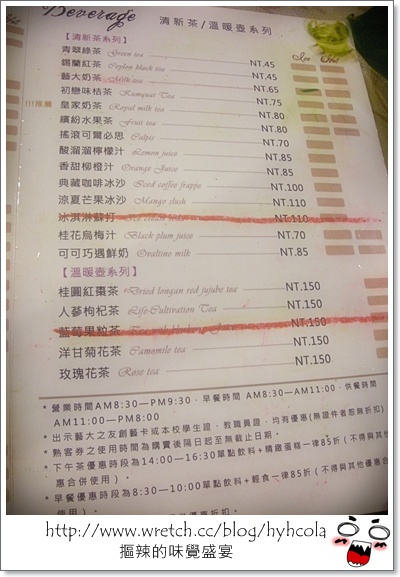 Beverage 清新茶/溫暖壺系列
【清新茶系列】 Ice Hot
青翠綠茶 Green tea NT.45
錫蘭紅茶 Ceylon black tea NT.45
藝大奶茶 Milk tea NT.65
初戀味桔茶 Kumquat Tea NT.75
皇家奶茶 Royal milk tea NT.80
繽紛水果茶 Fruit tea NT.80
搖滾可爾必思 Calpis NT.70
酸溜溜檸檬汁 Lemon juice NT.85
香甜柳橙汁 Orange Juice NT.85
典藏咖啡冰沙 Iced coffee frappe NT.100
涼夏芒果冰沙 Mango slush NT.110
冰淇淋蘇打 NT.110
桂花烏梅汁 Black plum juice NT.70
可可巧遇鮮奶 Ovaltine milk NT.85
【溫暖壺系列】
桂圓紅棗茶 Dried longan red jujube tea NT.150
人蔘枸杞茶 Life-Cultivation Tea NT.150
藍莓果粒茶 NT.150
洋甘菊花茶 Camomile tea NT.150
玫瑰花茶 Rose tea NT.150
*營業時間AM8:30—PM9:30，早餐時間 AM8:30—AM11:00，供餐時間
AM11:00—PM8:00
*出示藝大之友創藝卡或本校學生證、教職員證，均有優惠(無證件者恕無折扣)
*熟客券之使用時間為購買後隔日起至無截止日期。
*下午茶優惠時段為14:00—16:30單點飲料+精緻蛋糕一律85折（不得與其他優
惠合併使用）。
*早餐優惠時段為8:30—10:00單點飲料+輕食一律85折（不得與其他優惠
合併使用）。
http://www.wretch.cc/blog/hyhcola
摳辣的味覺盛宴